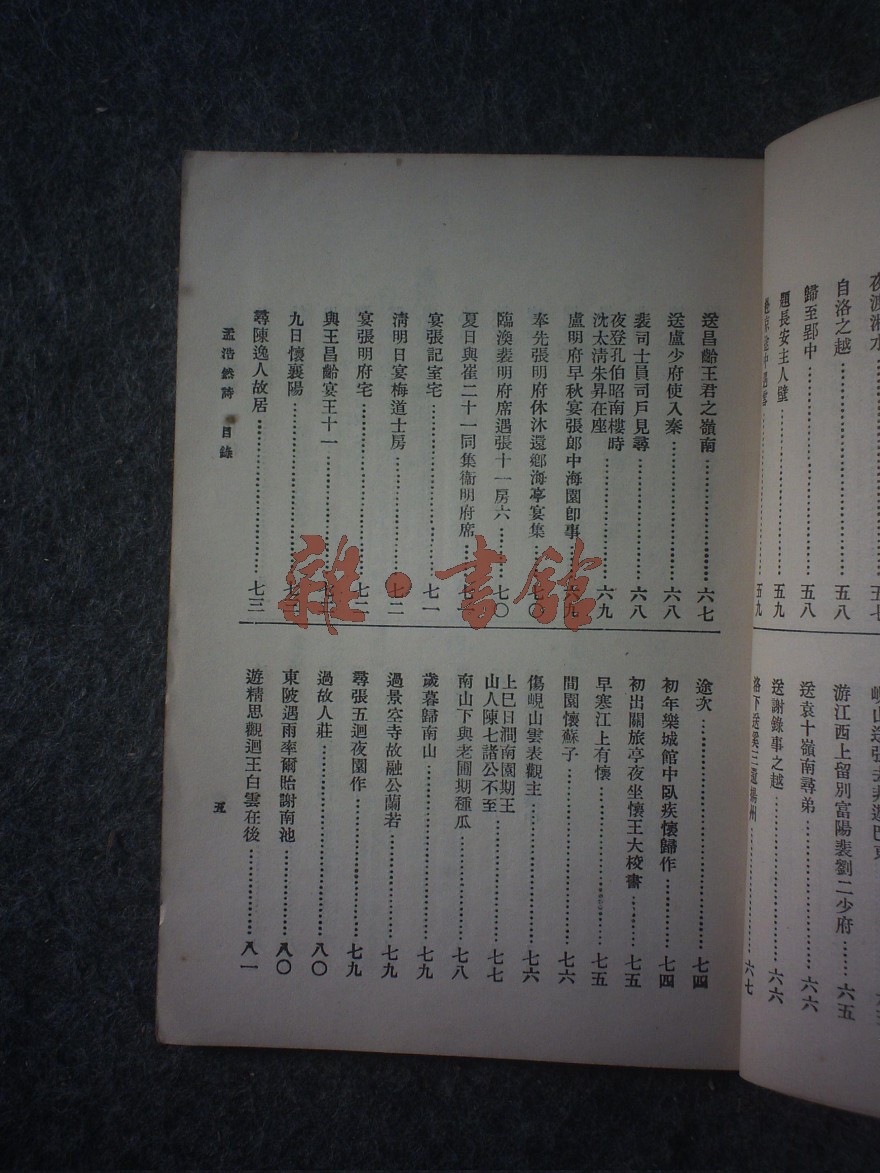 夜渡湘水
自洛之越……五八
歸至郢中……五八
題長安主人壁……五九
五九
游江西上留別富陽裴劉二少府……六五
送袁十嶺南尋弟……六六
送謝錄事之越……六六
洛下送奚三還揚州……六七
送昌齡王君之嶺南……六七
送盧少府使入秦……六八
裴司士員司戶見尋……六八
夜登孔伯昭南樓時
沈太淸朱昇在座……六九
盧明府早秋宴張郎中海園卽事……六九
奉先張明府休沐還鄉海亭宴集……七〇
臨渙裴明府席遇張十一房六……七〇
夏日與崔二十一同集衞明府席……七一
宴張記室宅……七一
淸明日宴梅道士房……七二
宴張明府宅……七二
與王昌齡宴王十一
九日懷襄陽
尋陳逸人故居……七三
途次……七四
初年樂城館中臥疾懷歸作……七四
初出關旅亭夜坐懷王大校書……七五
早寒江上有懷……七五
間園懷蘇子……七六
傷峴山雲表觀主……七六
上巳日澗南園期王
山人陳七諸公不至……七七
南山下與老圃期種瓜……七八
歲暮歸南山……七九
過景空寺故融公蘭若……七九
尋張五迴夜園作……七九
過故人莊……八〇
東陂遇雨率爾貽謝南池……八〇
遊精思觀迴王白雲在後……八一
孟浩然詩 目錄
五
雜·書館